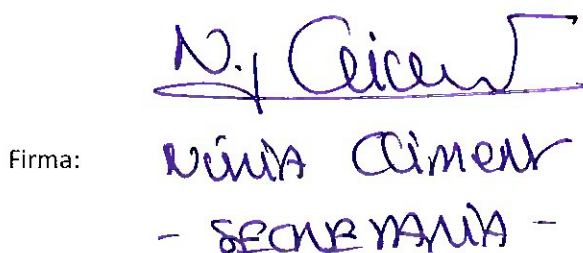 N. Climent
Firma: Núria Climent
- SECRETARIA -